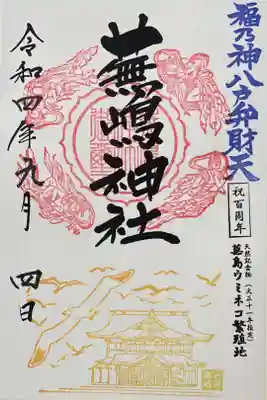 福乃神八方弁財天
祝百周年
天然記念物(大正十一年指定)
蕪島ウミネコ繁殖地
蕪嶋神社
令和四年九月
四日